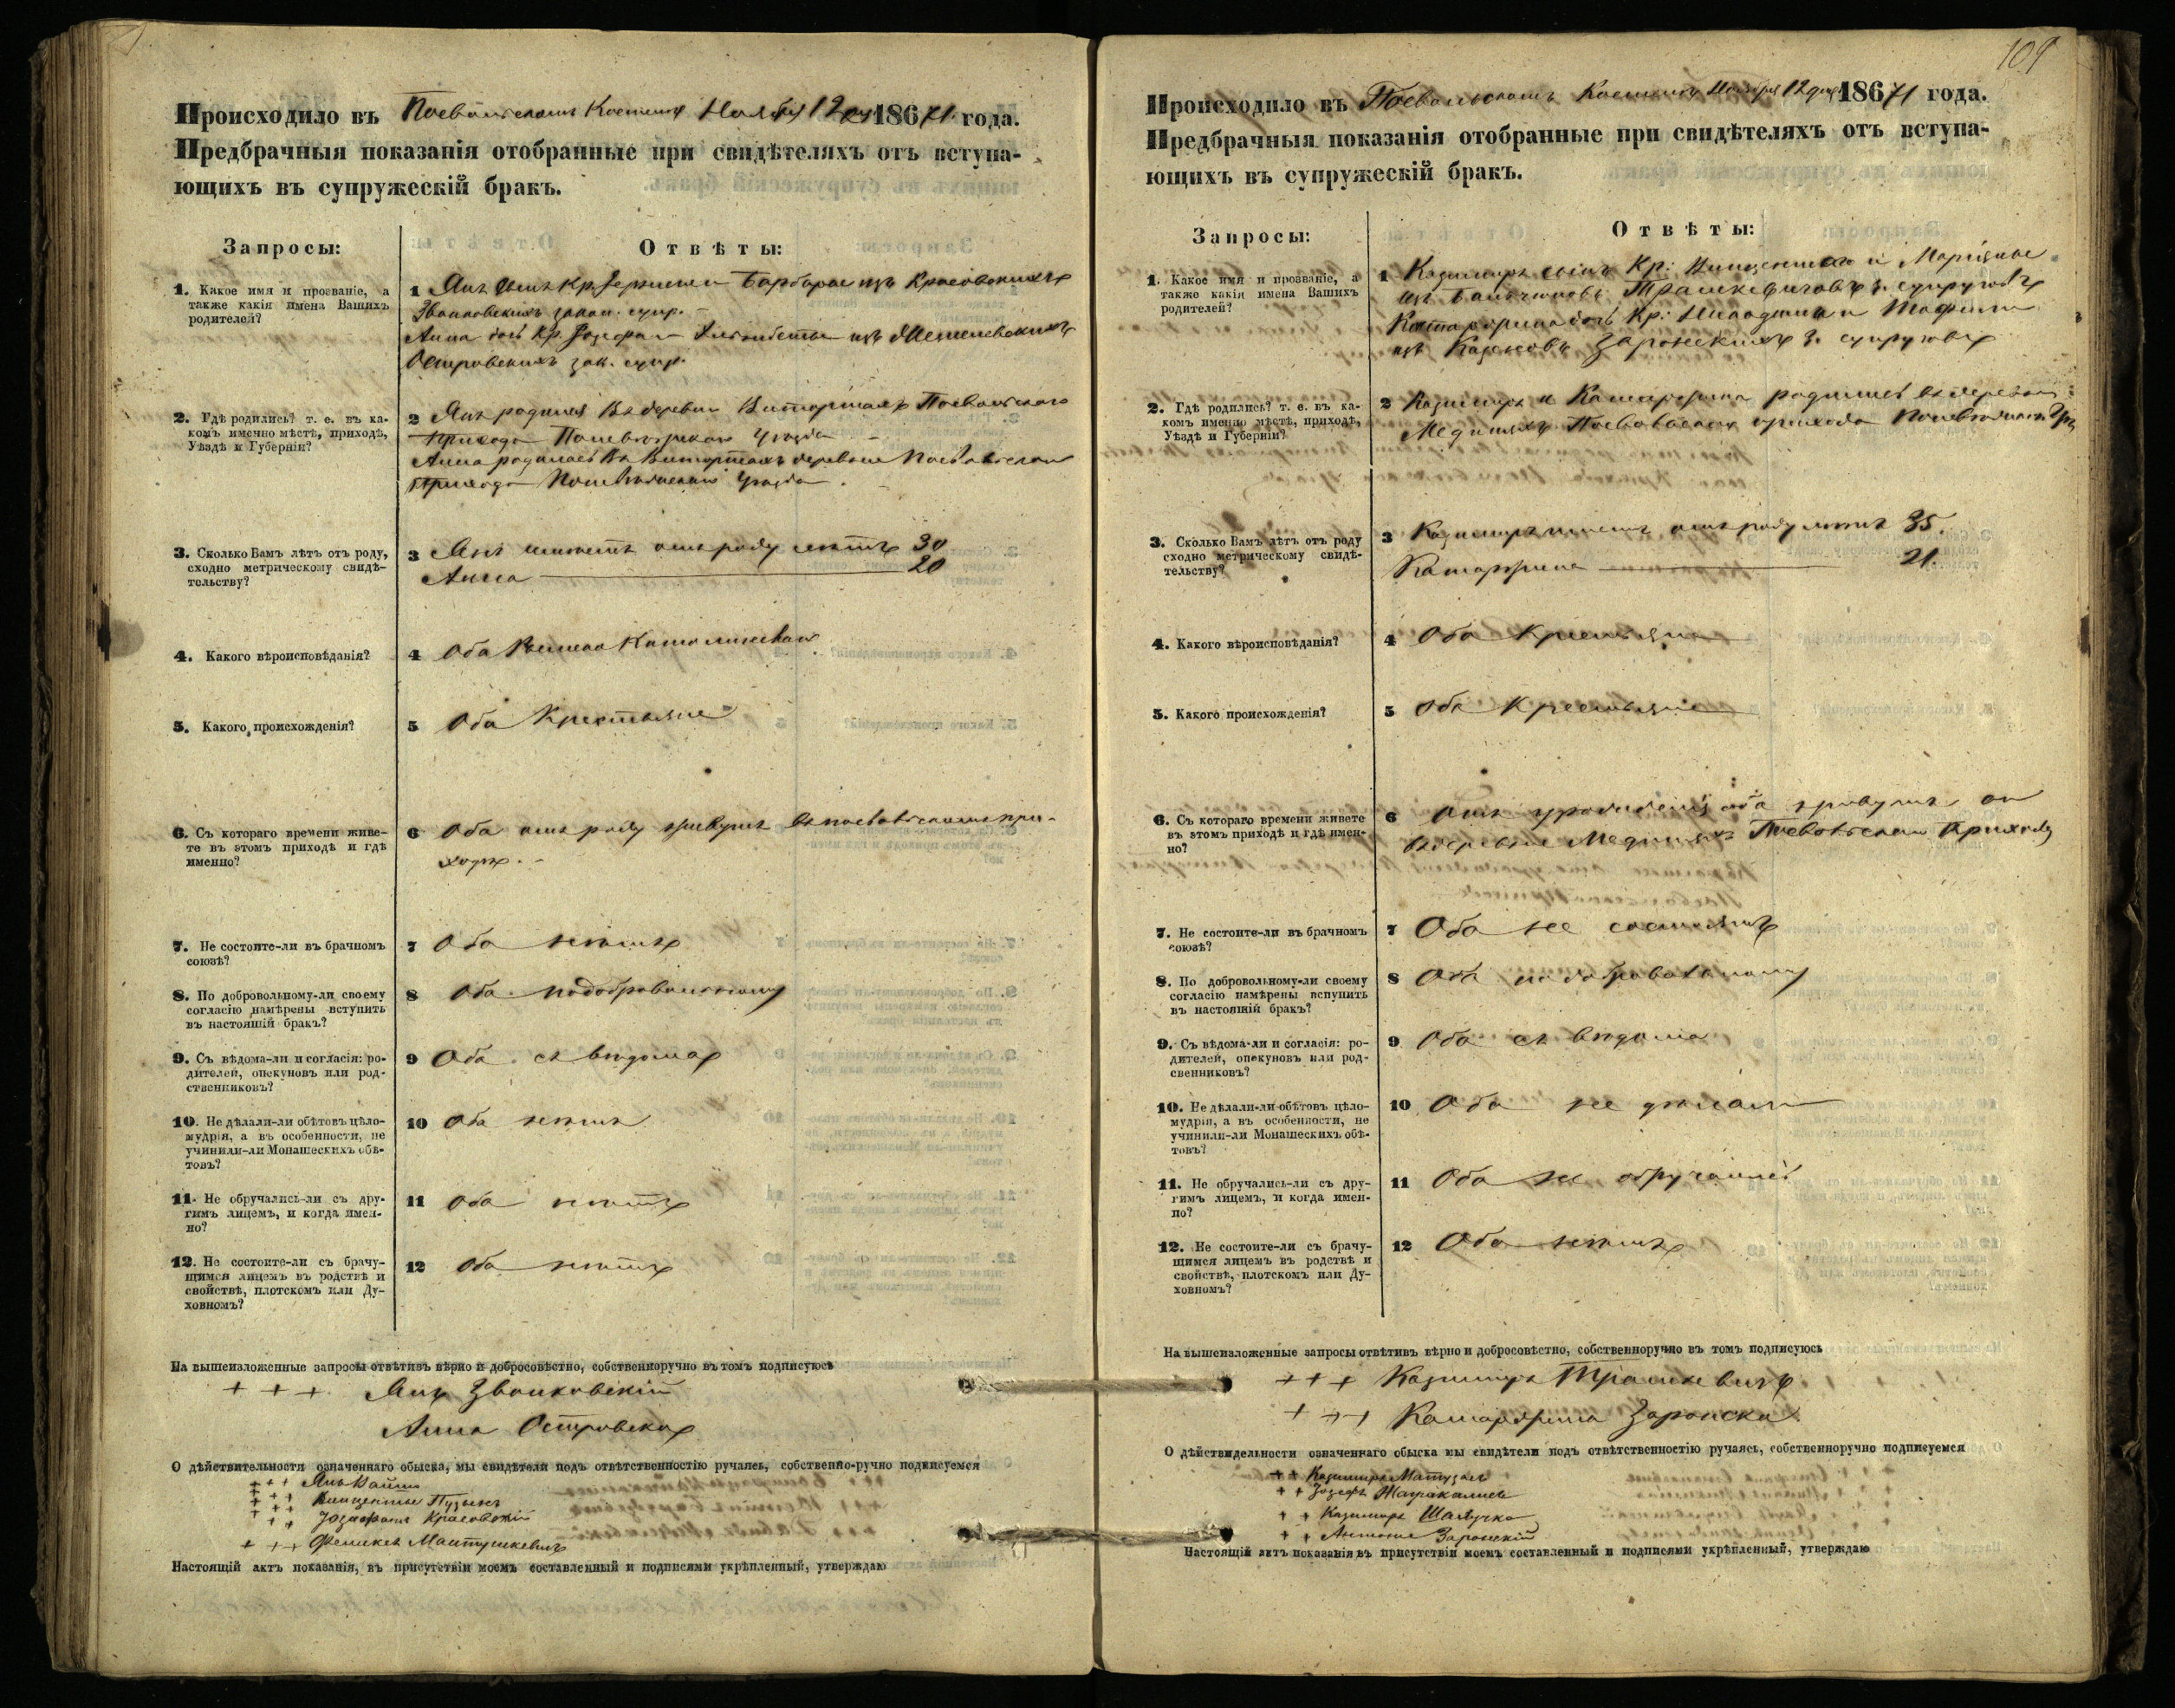 Происходило въ Поевольскомъ Костелѣ Ноября 12 дня 18671 года.
Предбрачныя показанія отобранные при свидѣтеляхъ отъ вступа-
ющихъ въ супружескій бракъ.
Запросы:
Отвѣты:
1. Какое имя и прозваніе, а
также какія имена Вашихъ
родителей?
1 Янъ сынъ Кр. и Барбары изъ Красовскихъ
Званковскихъ закон. супр.
Анна дочь Кр. Іозефа и Элисабеты изъ
Островскихъ зак. супр.
2. Гдѣ родились? т. е. въ ка-
комъ именно мѣстѣ, приходѣ,
Уѣздѣ и Губерніи?
2 Янъ родился въ деревни Поевольскаго
прихода Поневѣжскаго Уѣзда
Анна родилась въ деревни Поевольскаго
прихода Поневѣжскаго Уѣзда
3. Сколько Вамъ лѣтъ отъ роду,
сходно метрическому свидѣ-
тельству?
3 Янъ имѣетъ отъ роду лѣтъ 30
Анна 20
4. Какого вѣроисповѣданія?
4 Оба Римско Католическаго
5. Какого происхожденія?
5 Оба Крестьяне
6. Съ котораго времени живе-
те въ этомъ приходѣ и гдѣ
именно?
6 Оба отъ роду живутъ въ Поевольскомъ при-
ходѣ.
7. Не состоите-ли въ брачномъ
союзѣ?
7 Оба нѣтъ
8. По добровольному-ли своему
согласію намѣрены вступить
въ настоящій бракъ?
8 Оба подобровольному
9. Съ вѣдома-ли и согласія: ро-
дителей, опекуновъ или род-
ственниковъ?
9 Оба съ вѣдома
10. Не дѣлали-ли обѣтовъ цѣло-
мудрія, а въ особенности, не
учинили-ли Монашескихъ обѣ-
товъ?
10 Оба нѣтъ
11. Не обручались-ли съ дру-
гимъ лицемъ, и когда имен-
но?
11 Оба нѣтъ
12. Не состоите-ли съ брачу-
щимся лицемъ въ родствѣ и
свойствѣ, плотскомъ или Ду-
ховномъ?
12 Оба нѣтъ
На вышеизложенные запросы отвѣтивъ вѣрно и добросовѣстно, собственноручно въ томъ подписуюсь
+ + + Янъ Званковскій
Анна Островска
О дѣйствительности означеннаго обыска, мы свидѣтели подъ отвѣтственностію ручаясь, собственно-ручно подписуемся
+ + + Янъ
+ + + Винцентые Пузынъ
+ + + Іозафатъ Красовскій
+ + + Феликсъ Матушкевичъ
Настоящій актъ показанія, въ присутствіи моемъ составленный и подписями укрѣпленный, утверждаю
109
Происходило въ Поевольскомъ Костелѣ Ноября 12 дня 18671 года.
Предбрачныя показанія отобранные при свидѣтеляхъ отъ вступа-
ющихъ въ супружескій бракъ.
Запросы:
Отвѣты:
1. Какое имя и прозваніе, а
также какія имена Вашихъ
родителей?
1 Казимиръ сынъ Кр: Винцентыя и Маріанны
изъ Трашкевичовъ з. супруговъ
Катаржина дочь Кр: и
изъ Заронскихъ з. супруговъ
2. Гдѣ родились? т. е. въ ка-
комъ именно мѣстѣ, приходѣ,
Уѣздѣ и Губерніи?
2 Казимиръ и Катаржина родились въ деревни
Поевольскаго прихода
3. Сколько Вамъ лѣтъ отъ роду
сходно метрическому свидѣ-
тельству?
3 Казимиръ имѣетъ отъ роду лѣтъ 35.
Катаржина 21.
4. Какого вѣроисповѣданія?
4 Оба Крестьяне
5. Какого происхожденія?
5 Оба Крестьяне
6. Съ котораго времени живете
въ этомъ приходѣ и гдѣ имен-
но?
6 Отъ урожденія оба живутъ
въ деревни Поевольскаго Прихода
7. Не состоите-ли въ брачномъ
союзѣ?
7 Оба не состоятъ
8. По добровольному-ли своему
согласію намѣрены вспупить
въ настоящій бракъ?
8 Оба по добровольному
9. Съ вѣдома-ли и согласія: ро-
дителей, опекуновъ или род-
свенниковъ?
9 Оба съ вѣдома
10. Не дѣлали-ли обѣтовъ цѣло-
мудрія, а въ особенности, не
учинили-ли Монашескихъ обѣ-
товъ?
10 Оба не дѣлали
11. Не обручались-ли съ дру-
гимъ лицемъ, и когда имен-
но?
11 Оба не обручались
12. Не состоите-ли съ брачу-
щимся лицемъ въ родствѣ и
свойствѣ, плотскомъ или Ду-
ховномъ?
12 Оба нѣтъ
На вышеизложенные запросы отвѣтивъ вѣрно и добросовѣстно, собственноручно въ томъ подписуюсь
+ + + Казимиръ Трашкевичъ
+ + + Катаржина Заронска
О дѣйствидельности означеннаго обыска мы свидѣтели подъ отвѣтственностію ручаясь, собственноручно подписуемся
+ + Казимиръ Матузасъ
+ + Іозефъ
+ + Казимиръ Шалучка
+ + Антоніе Заронскій
Настоящій актъ показанія въ присутствіи моемъ составленный и подписями укрѣпленный, утверждаю